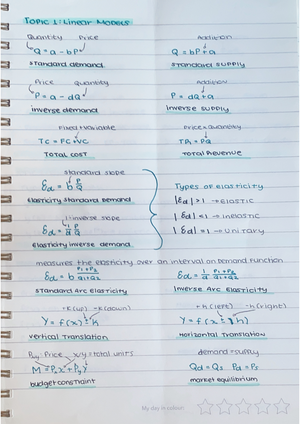 TOPIC 1: Linear Models
Quantity Price
Q = a - bP
standard demand
Addition
Q = bP + a
standard supply
Price quantity
P = a - dQ
inverse demand
Addition
P = dQ + a
Inverse supply
Fixed + variable
TC = FC + VC
TOTAL COST
Price × Quantity
TR = PQ
Total Revenue
standard slope
εd = b P/Q
elasticity standard demand
1/inverse slope
εd = 1/d P/Q
elasticity inverse demand
Types of elasticity
|εd| > 1 → ELASTIC
|εd| < 1 → inelastic
|εd| = 1 → UNITARY
measures the elasticity over an interval on demand function
εd = b P1+P2/Q1+Q2
STANDARD ARC Elasticity
εd = 1/d P1+P2/Q1+Q2
Inverse Arc Elasticity
+k(up) -k(down)
Y = f(x) ± k
vertical Translation
+h(left) -h(right)
Y = f(x ± h)
Horizontal Translation
Price x/y = total units
M = Pxx + Pyy
budget constraint
demand = supply
Qd = Qs Pd = Ps
market equilibrium
My day in colour: